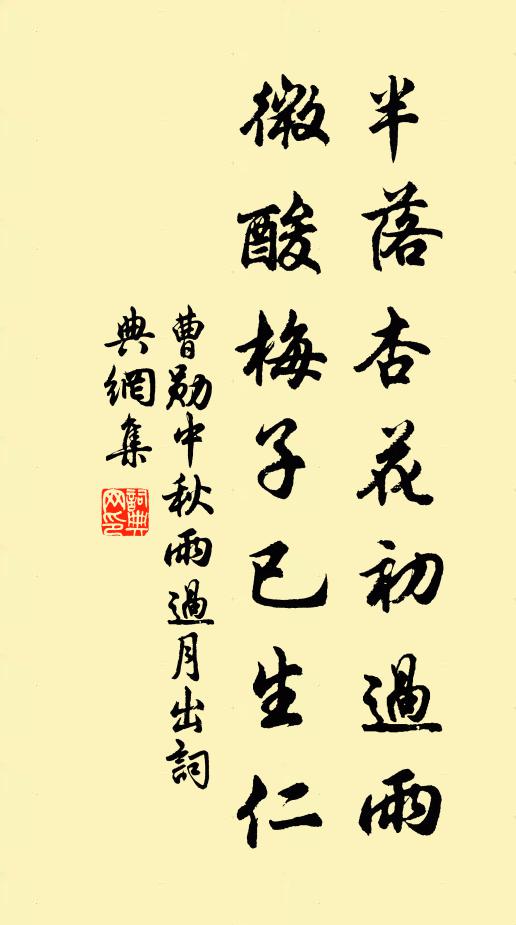 半落杏花初過雨
微酸梅子已生仁
曹勛中秋雨過月出詞
典網集
詞典網印